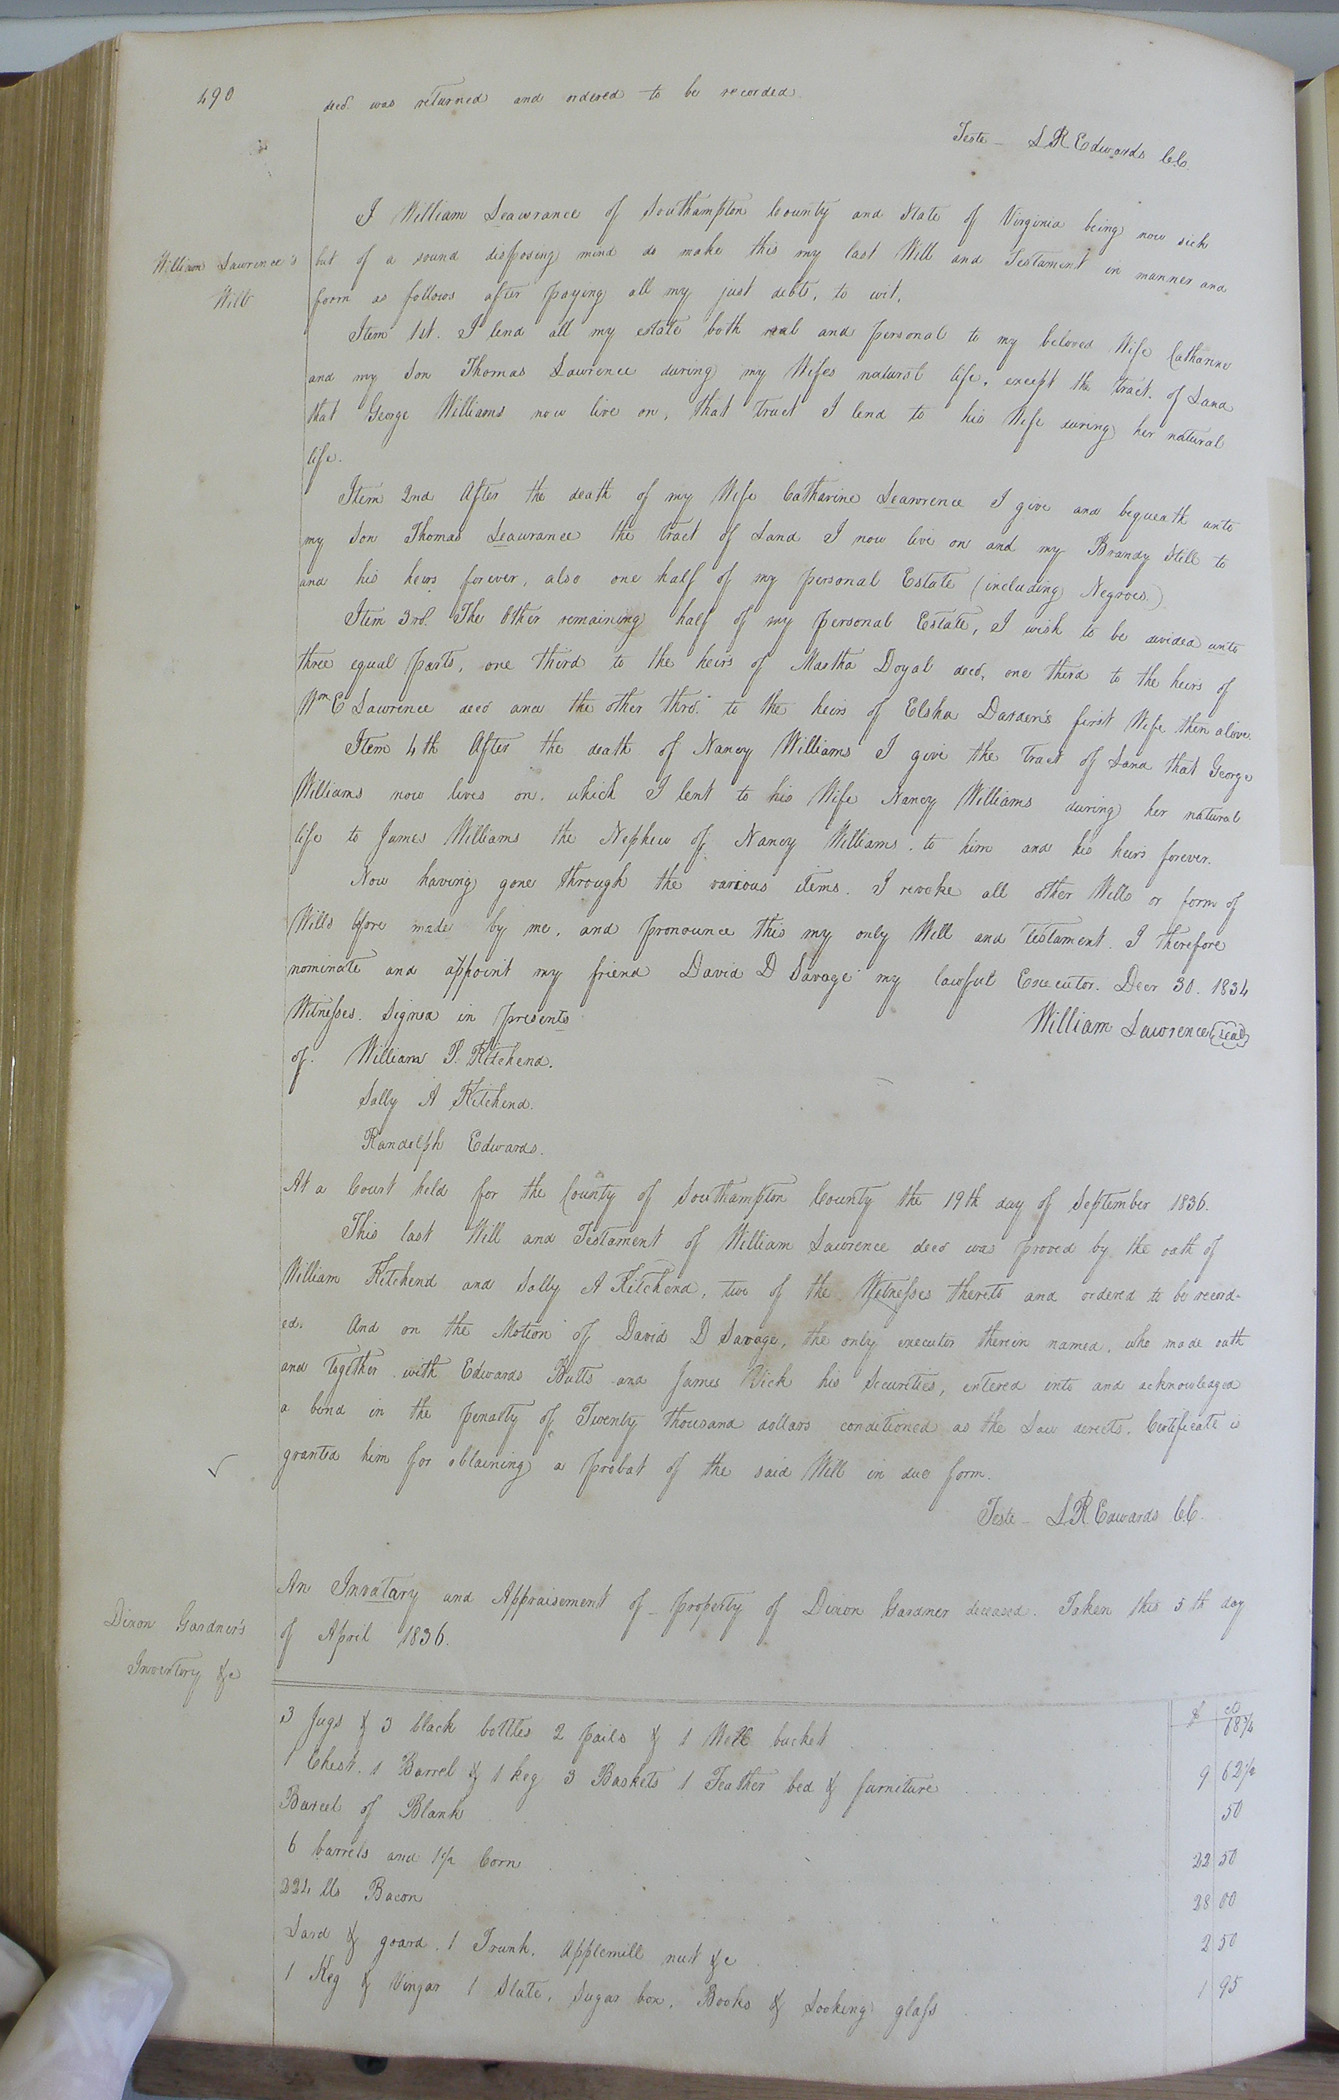 490
decd. was returned and ordered to be recorded
Teste - L.R. Edwards C.C.
William Lawrence's
Will
I William Leawrance of Southampton County and State of Virginia being now sick
but of a sound disposing mind do make this my last Will and Testament in manner and
form as follows after paying all my just debts, to wit,
Item 1st. I lend all my estate both real and personal to my beloved Wife Catharine
and my Son Thomas Lawrence during my Wifes natural life, except the tract of Land
that George Williams now live on, that tract I lend to his Wife during her natural
life.
Item 2nd After the death of my Wife Catharine Leawrence I give and bequeath unto
my Son Thomas Leawrance the tract of Land I now live on and my Brandy Still to
and his heirs forever, also one half of my personal Estate (including Negroes.)
Item 3rd. The Other remaining half of my personal Estate, I wish to be divided unto
three equal parts, one third to the heirs of Martha Doyal decd, one third to the heirs of
Wm E Lawrence decd and the other third to the heirs of Elsha Darden's first Wife then alive.
Item 4th After the death of Nancy Williams I give the tract of Land that George
Williams now lives on, which I lent to his Wife Nancy Williams during her natural
life to James Williams the Nephew of Nancy Williams, to him and his heirs forever.
Now having gone through the various items. I revoke all other Wills or form of
Wills before made by me, and pronounce this my only Will and Testament. I therefore
nominate and appoint my friend David D Savage my lawful Executor. Decr 30. 1834
Witnesses. Signed in presents
William Lawrence (seal)
of. William P. Kitchend.
Sally A Kitchend.
Randolph Edwards.
At a Court held for the County of Southampton County the 19th day of September 1836.
This last Will and Testament of William Lawrence decd was proved by the oath of
William Kitchend and Sally A Kitchend, two of the Witnesses thereto and ordered to be record-
ed. And on the Motion of David D Savage, the only executor therein named, who made oath
and together with Edwards Butts and James Dick his Securities, entered into and acknowledged
a bond in the penalty of Twenty thousand dollars conditioned as the Law directs. Certificate is
granted him for obtaining a probat of the said Will in due form.
Teste - L.R. Edwards C.C.
Dixon Gardner's
Inventory &c
An Invatary and Appraisement of property of Dixon Gardner deceased. Taken this 5th day
of April 1836.
$ cts
3 Jugs & 3 black bottles 2 pails & 1 Well bucket 68 3/4
1 Chest. 1 Barrel & 1 keg 3 Baskets 1 Feather bed & furniture 9 62 1/2
Barcel of Blank 50
6 barrels and 1/2 Corn 22 50
224 lbs Bacon 28 00
Lard & goard. 1 Trunk. Applemill nut &c 2 50
1 Keg & Vingar 1 Slate, Sugar box, Books & Looking glass 1 95